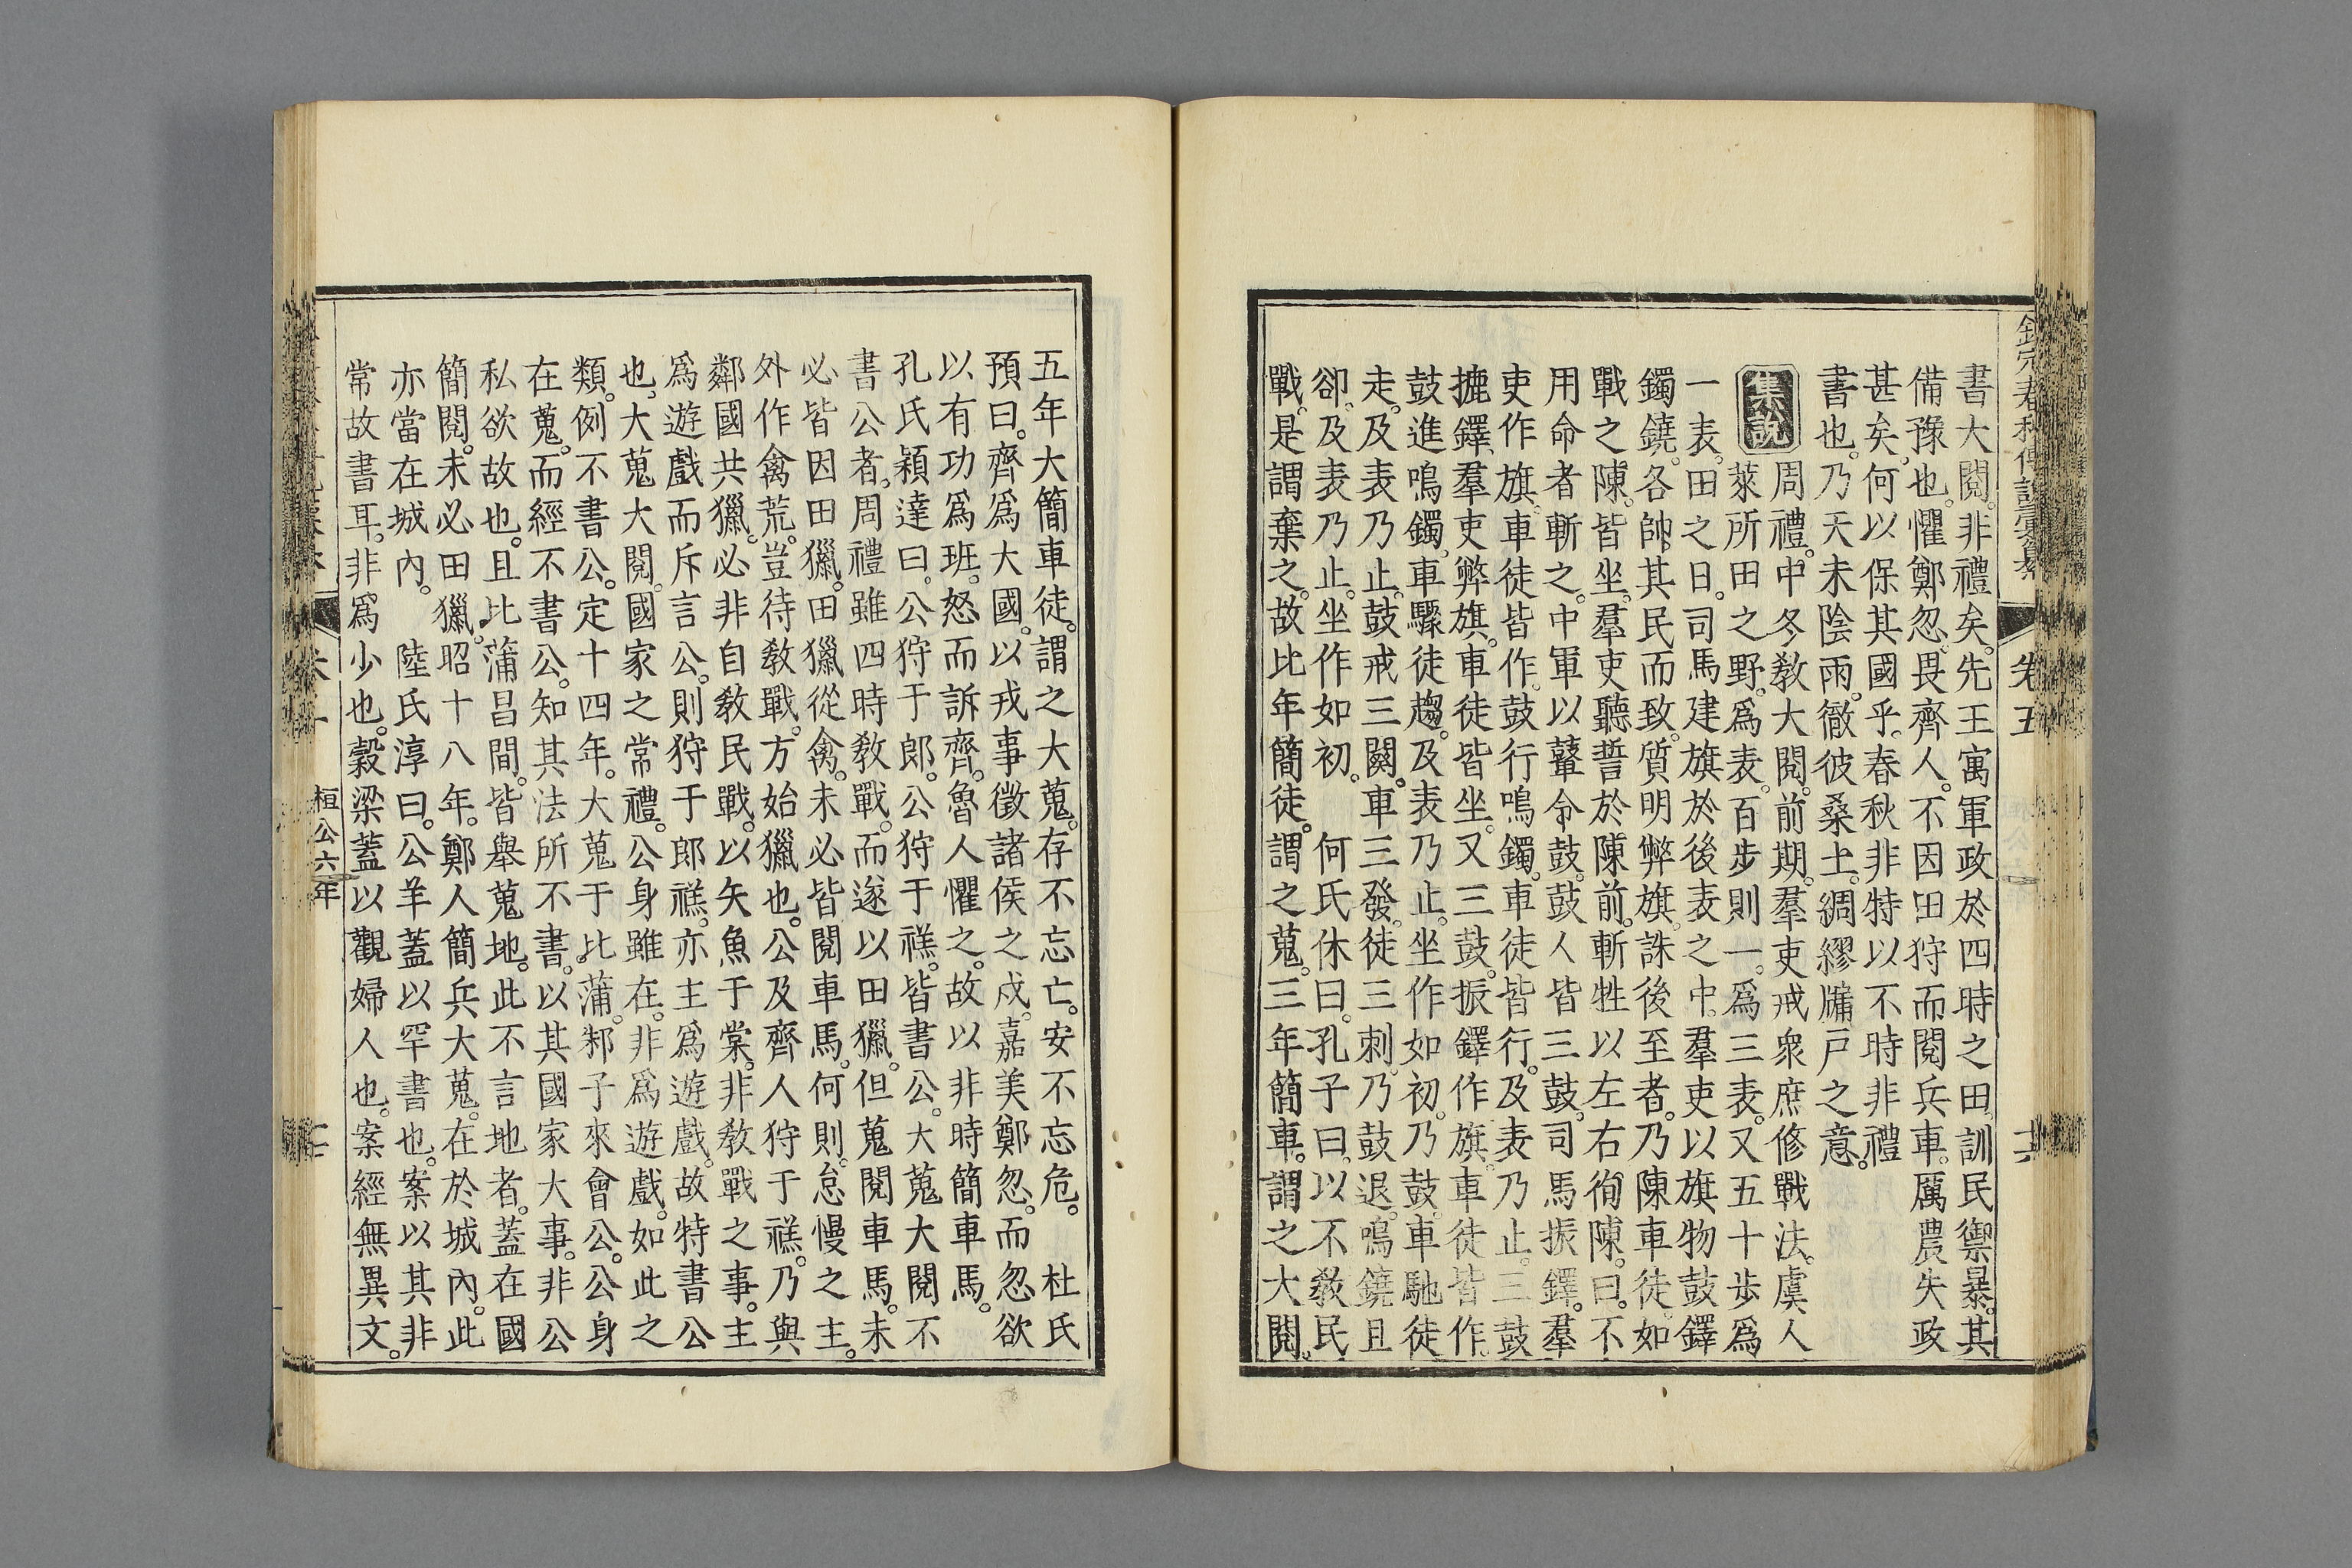 欽定春秋傳說彙纂
卷五
書大閱。非禮矣。先王寓軍政於四時之田。訓民禦暴。其
備豫也。懼鄭忽。畏齊人。不因田狩而閱兵車。厲農失政
甚矣。何以保其國乎。春秋非特以不時非禮
書也。乃天未陰雨。徹彼桑土。綢繆牖戶之意。
集說
周禮。中冬教大閱。前期。羣吏戒眾庶修戰法。虞人
萊所田之野。爲表。百步則一。爲三表。又五十步爲
一表。田之日。司馬建旗於後表之中。羣吏以旗物鼓鐸
鐲鐃。各帥其民而致。質明弊旗。誅後至者。乃陳車徒。如
戰之陳。皆坐。羣吏聽誓於陳前。斬牲以左右徇陳。曰。不
用命者斬之。中軍以鼙令鼓。鼓人皆三鼓。司馬振鐸。羣
吏作旗。車徒皆作。鼓行鳴鐲。車徒皆行。及表乃止。三鼓
摝鐸。羣吏弊旗。車徒皆坐。又三鼓。振鐸作旗。車徒皆作。
鼓進鳴鐲。車驟徒趨。及表乃止。坐作如初。乃鼓。車馳徒
走。及表乃止。鼓戒三闋。車三發。徒三刺。乃鼓退。鳴鐃且
卻。及表乃止。坐作如初。　何氏休曰。孔子曰。以不敎民
戰。是謂棄之。故比年簡徒。謂之蒐。三年簡車。謂之大閱。
五年大簡車徒。謂之大蒐。存不忘亡。安不忘危。　杜氏
預曰。齊爲大國。以戎事徵諸侯之戍。嘉美鄭忽。而忽欲
以有功爲班。怒而訴齊。魯人懼之。故以非時簡車馬。
孔氏穎達曰。公狩于郎。公狩于禚。皆書公。大蒐大閱不
書公者。周禮雖四時敎戰。而遂以田獵。但蒐閱車馬。未
必皆因田獵。田獵從禽。未必皆閱車馬。何則。怠慢之主。
外作禽荒。豈待敎戰。方始獵也。公及齊人狩于禚。乃與
鄰國共獵。必非自敎民戰。以矢魚于棠。非敎戰之事。主
爲遊戲而斥言公。則狩于郎禚。亦主爲遊戲。故特書公
也。大蒐大閱。國家之常禮。公身雖在。非爲遊戲。如此之
類。例不書公。定十四年。大蒐于比蒲。邾子來會公。公身
在蒐。而經不書公。知其法所不書。以其國家大事。非公
私欲故也。且比蒲昌間。皆舉蒐地。此不言地者。蓋在國
簡閱。未必田獵。昭十八年。鄭人簡兵大蒐。在於城內。此
亦當在城內。　陸氏淳曰。公羊蓋以罕書也。案以其非
常故書耳。非爲少也。穀梁蓋以觀婦人也。案經無異文。
桓公六年